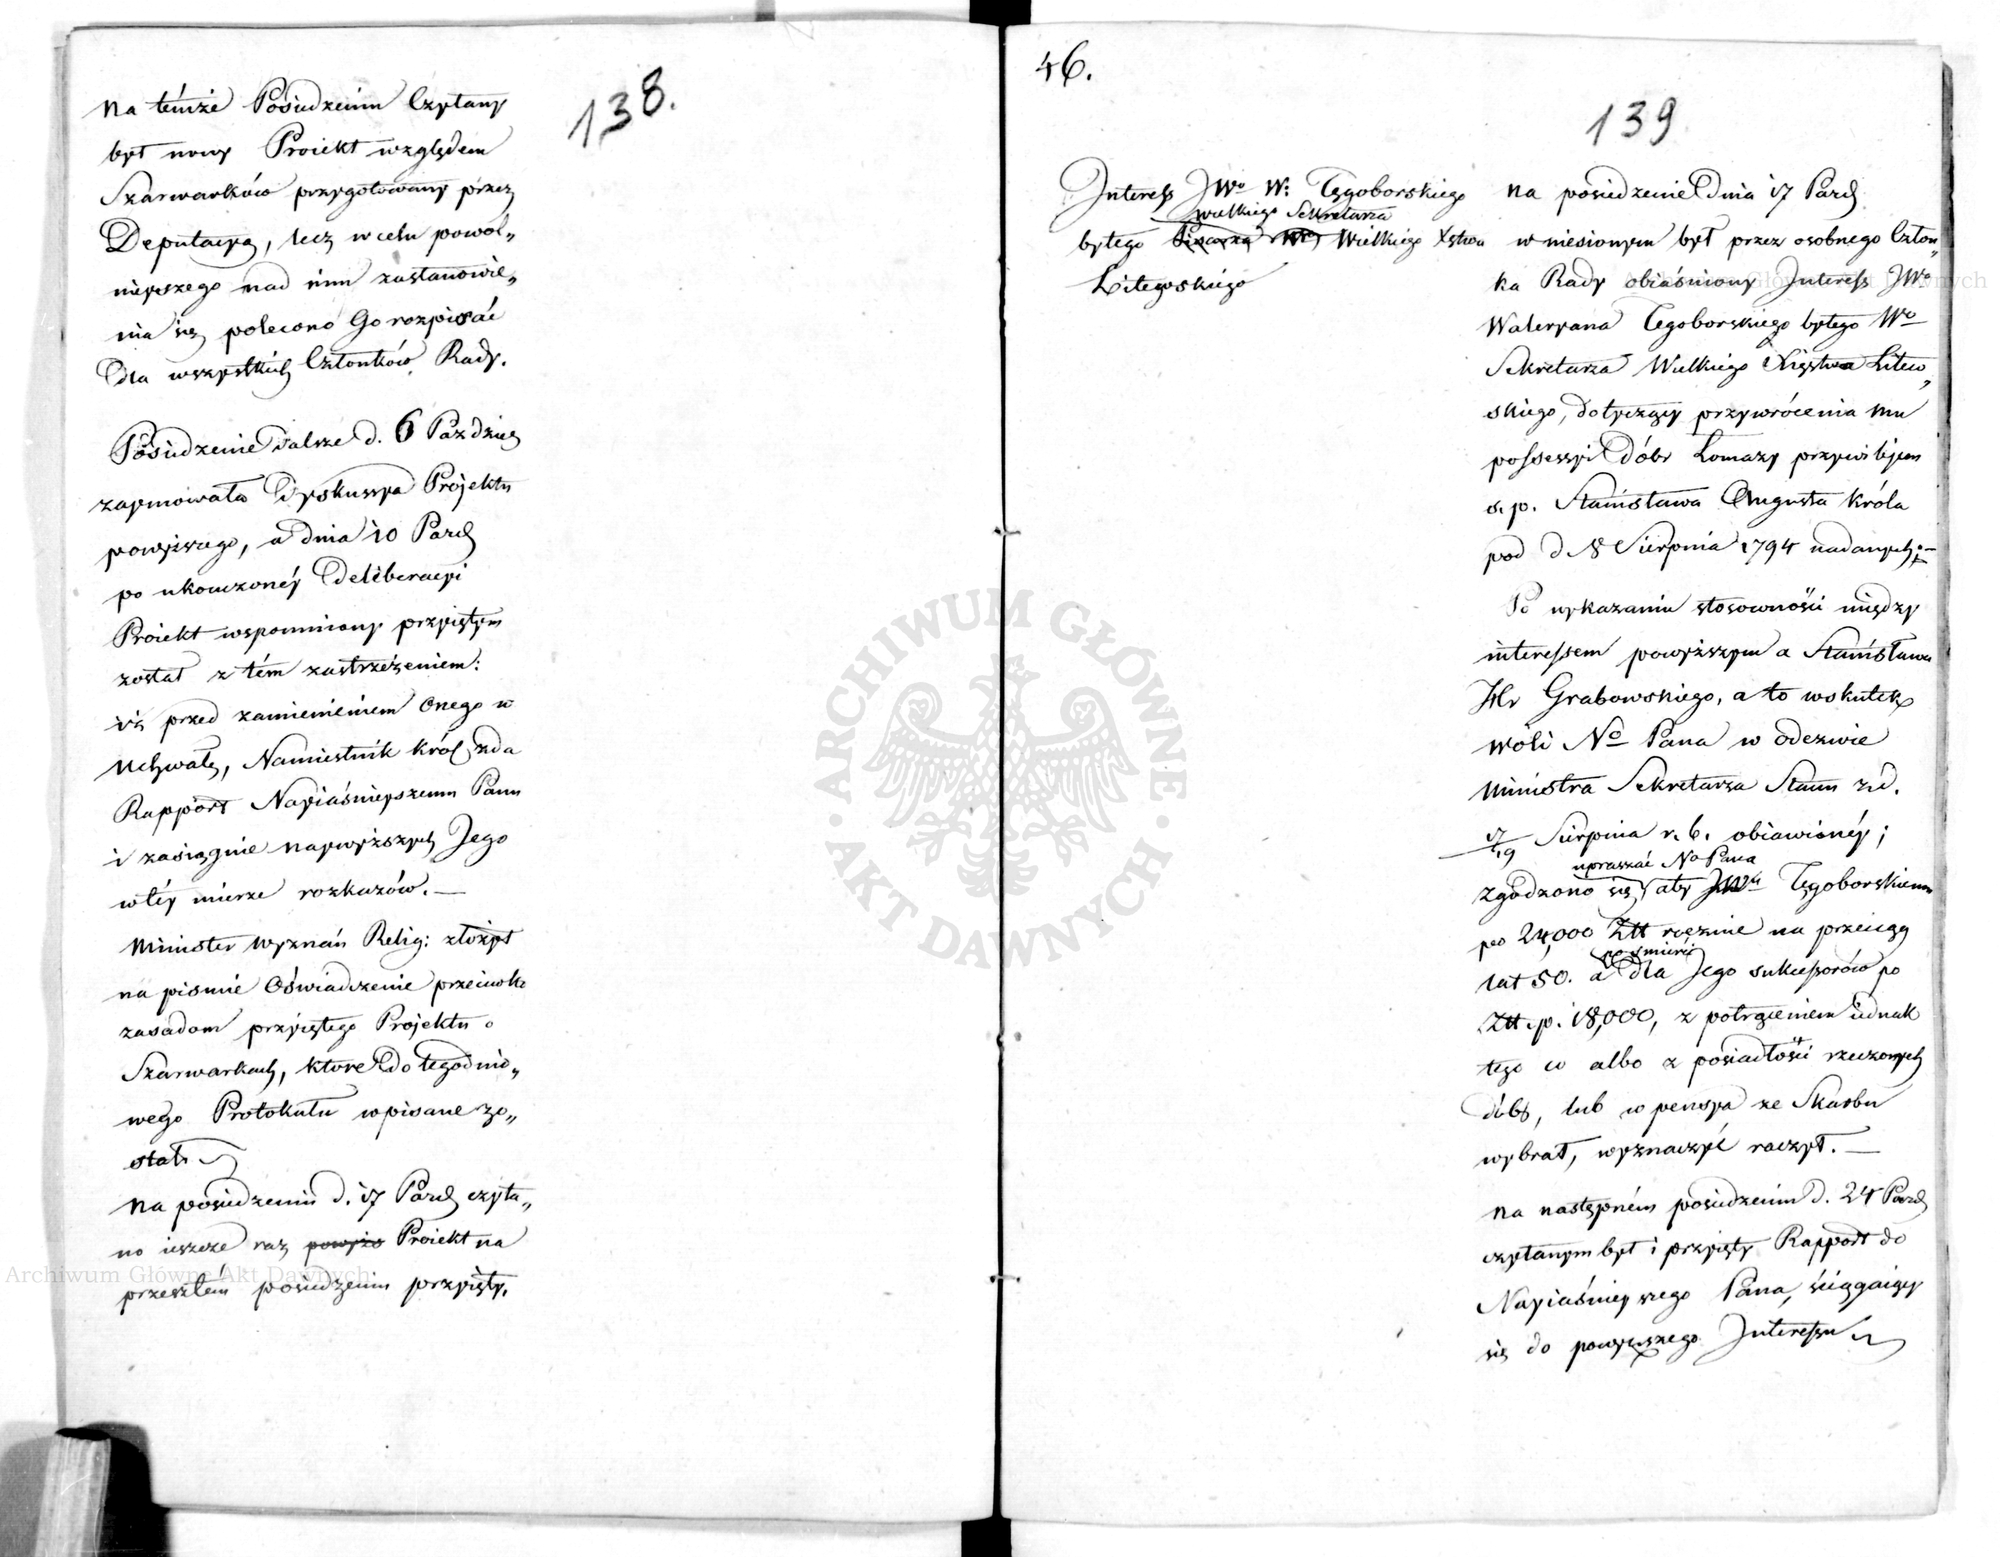 138.
Na témże Posiedzeniu Czytany
był nowy Proiekt względem
Szarwarków przygotowany przez
Deputacyą, lecz w celu powol„
nieyszego nad nim zastanowie„
nia się polecono Go rozpisać
dla wszystkich Członków Rady.
Posiedzenie dalsze d. 6 Paździer
zaymowała Dyskussya Projektu
powyższego, a dnia 10 Paźd
po ukończonéy Deliberacyi
Proiekt wspomniony przyiętym
został z tém zastrzeżeniem:
iż przed zamienieniem Onego w
Uchwałę, Namiestnik Król zda
Rapport Nayiaśnieyszemu Panu
i zasiągnie naywyższych Jego
w téy mierze rozkazów. —
Minister Wyznań Relig: złożył
na piśmie Oświadczenie przeciwko
zasadom przyiętego Projektu o
Szarwarkach, które do tegodnio„
wego Protokułu wpisane zo„
stało
Na posiedzeniu d. 17 Paźd czyta„
no ieszcze raz powyżs Proiekt na
przeszłém posiedzeniu przyięty.
46.
139
Interess JWo W: Tęgoborskiego
wielkiego Sekretarza
byłego Pisarza Wo Wielkiego Xstwa
Litewskiego
Na posiedzenie Dnia 17 Paźd
wniesionym był przez osobnego Człon„
ka Rady obiaśniony Interess JWo
Waleryana Tęgoborskiego byłego Wo
Sekretarza Wielkiego Xięstwa Litew„
skiego, dotyczący przywrócenia mu
possessyi Dóbr Łomazy przywilejem
ś. p. Stanisława Augusta Króla
pod d 8 Sierpnia 1794 nadanych. —
Po wykazaniu stosowności między
interessem powyższym a Stanisława
Hr Grabowskiego, a to wskutek
woli No Pana w odezwie
Ministra Sekretarza Stanu z d.
7/19 Sierpnia r. b. obiawionéy;
upraszać No Pana
zgodzono się aby JWu Tęgoborskiemu
po 24,000 Złt rocznie na przeciąg
po śmierci
lat 50. a dla Jego sukcessorów po
Złt. p. 18,000, z potrąceniem iednak
tego co albo z posiadłości rzeczonych
dóbr, lub w pensyą ze Skarbu
wybrał, wyznaczyć raczył. —
Na następném posiedzeniu d. 24 Paźd
czytanym był i przyięty Rapport do
Nayiaśnieyszego Pana, ściągaiący
się do powyższego Interessu
ARCHIWUM GŁÓWNE
AKT DAWNYCH
Archiwum Główne Akt Dawnych
Archiwum Główne Akt Dawnych